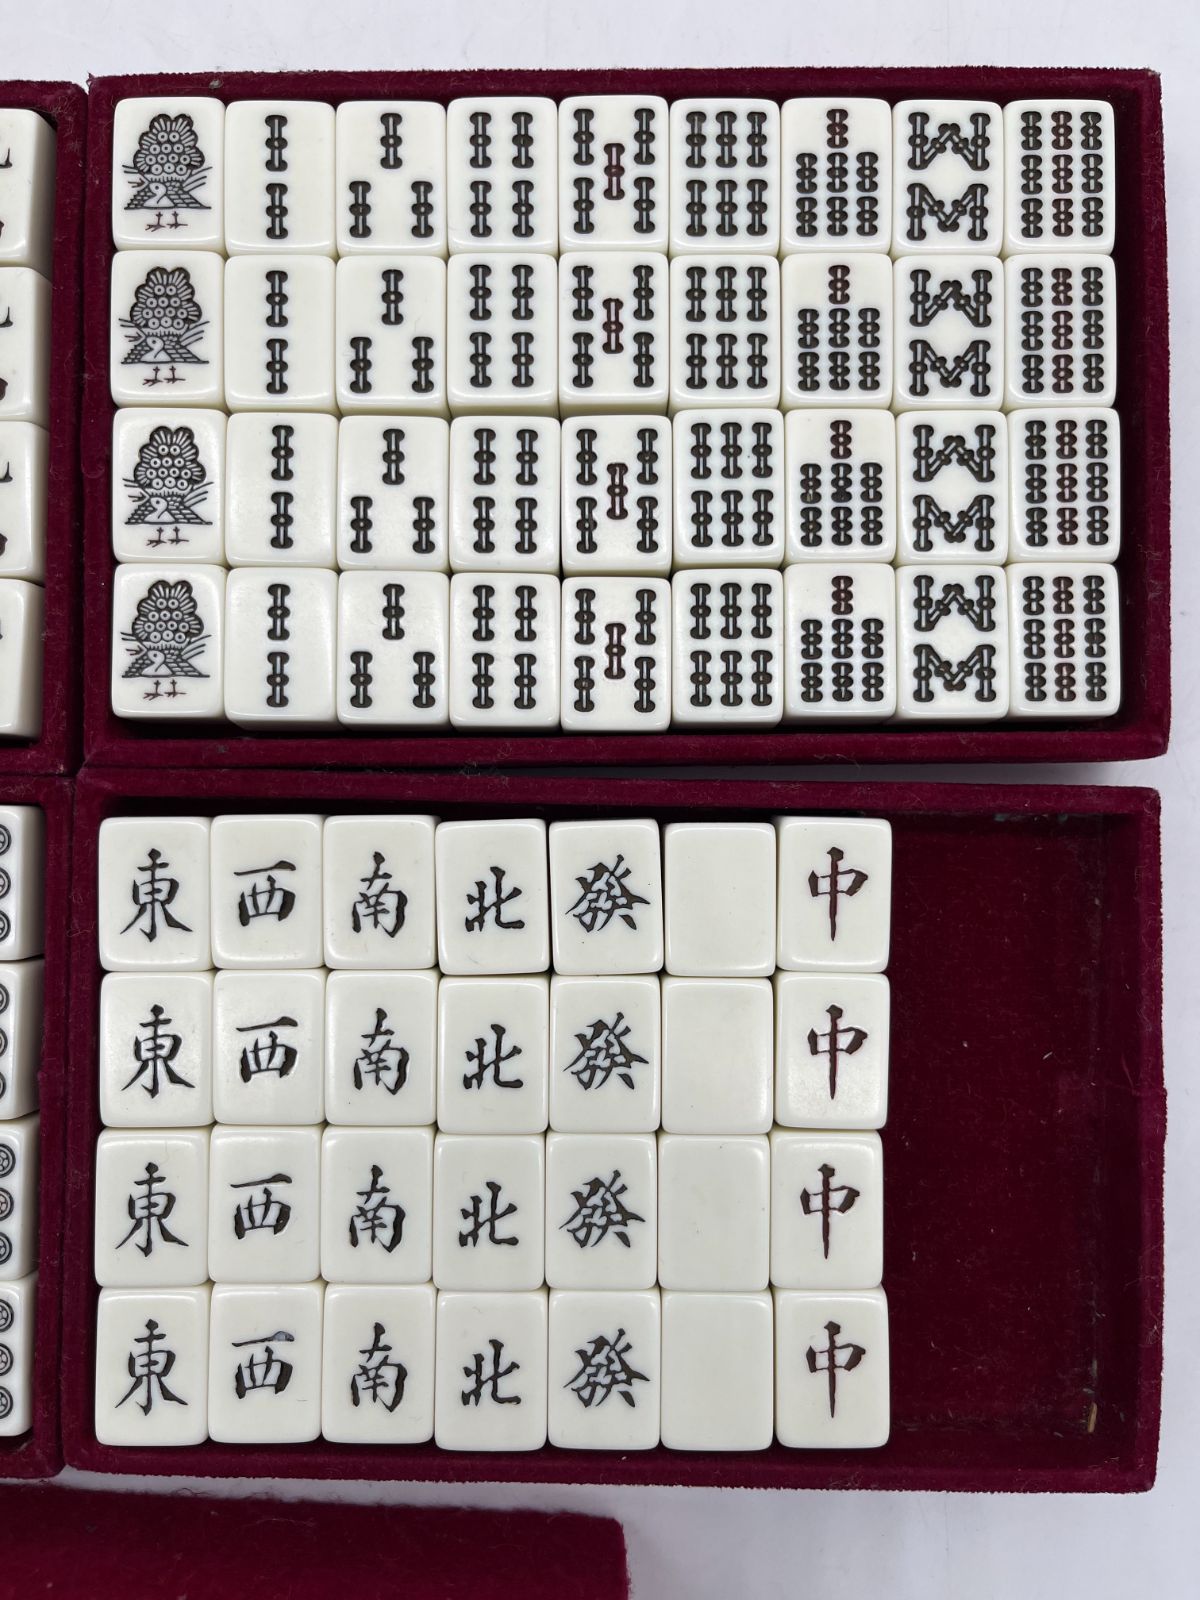 東 西 南 北 發 中
東 西 南 北 發 中
東 西 南 北 發 中
東 西 南 北 發 中